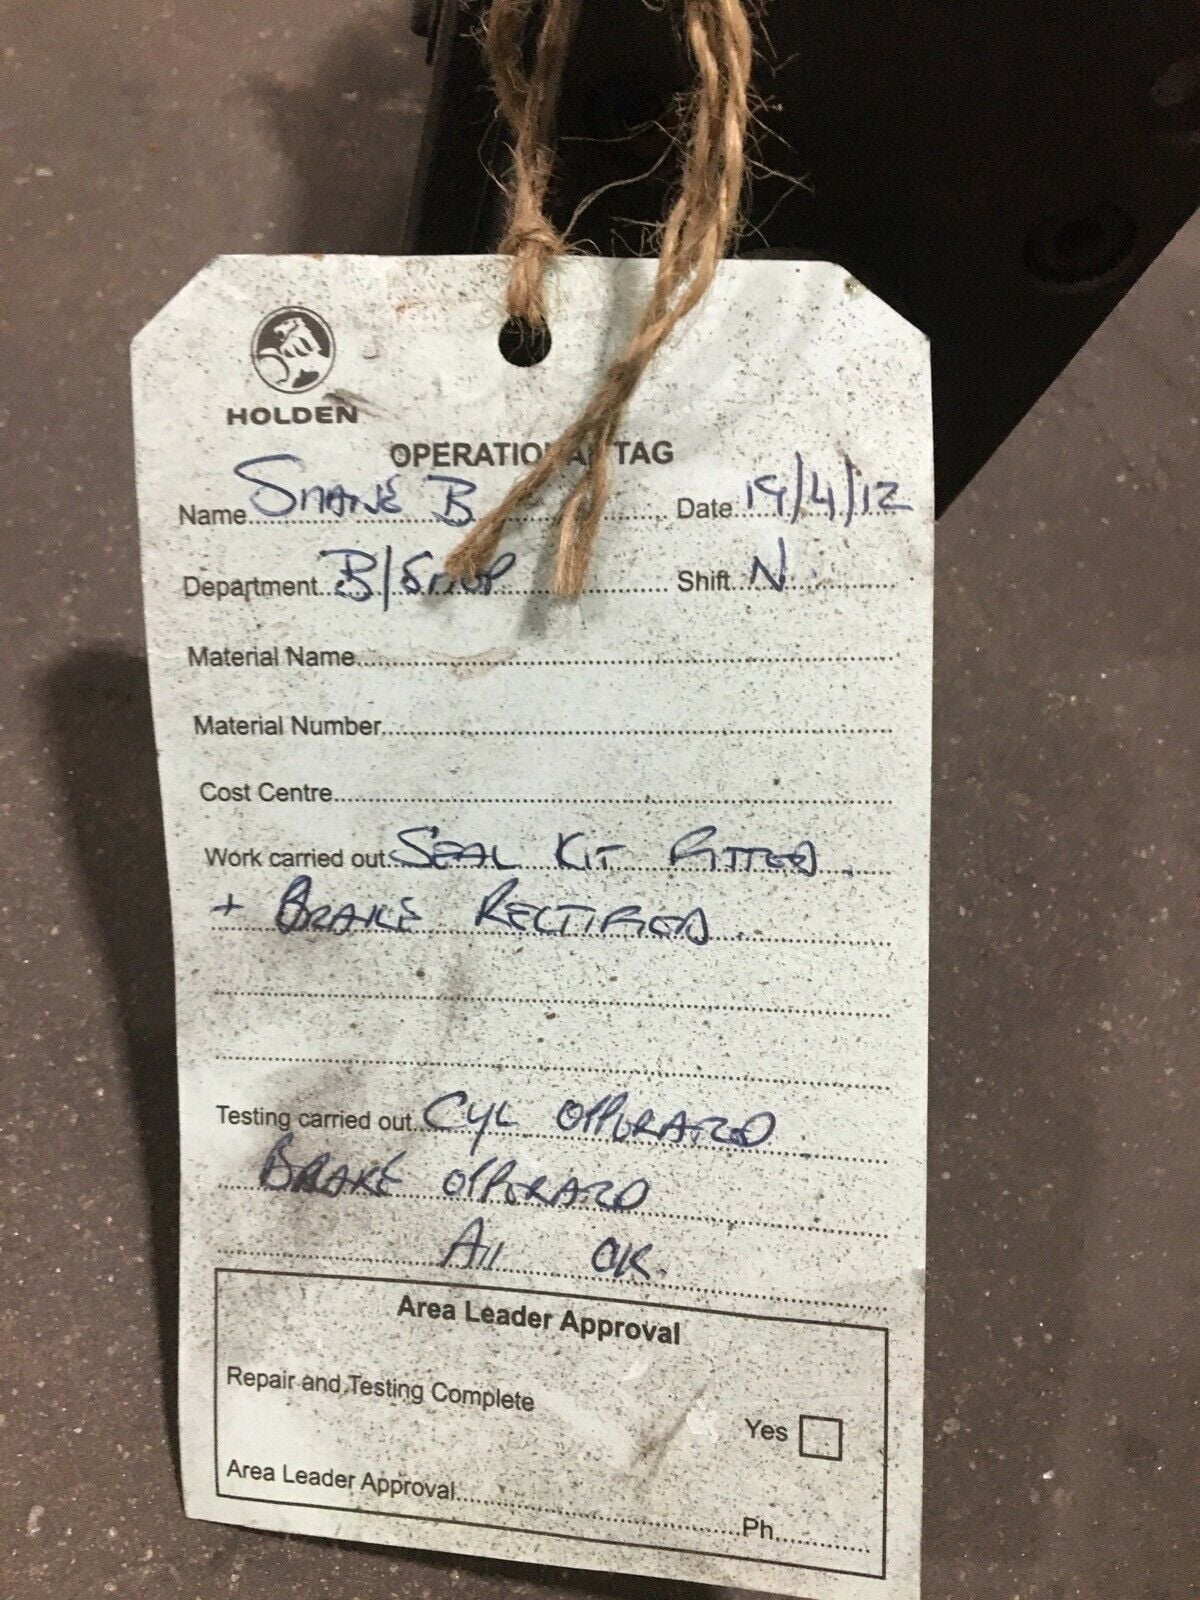 HOLDEN
OPERATIONAL TAG
Name SHANE B Date 19/4/12
Department B/SHOP Shift N
Material Name
Material Number
Cost Centre
Work carried out SEAL KIT FITTED.
+ BRAKE RECTIFIED.
Testing carried out CYL OPPERATED
BRAKE OPPERATED
All OK.
Area Leader Approval
Repair and Testing Complete
Yes
Area Leader Approval Ph